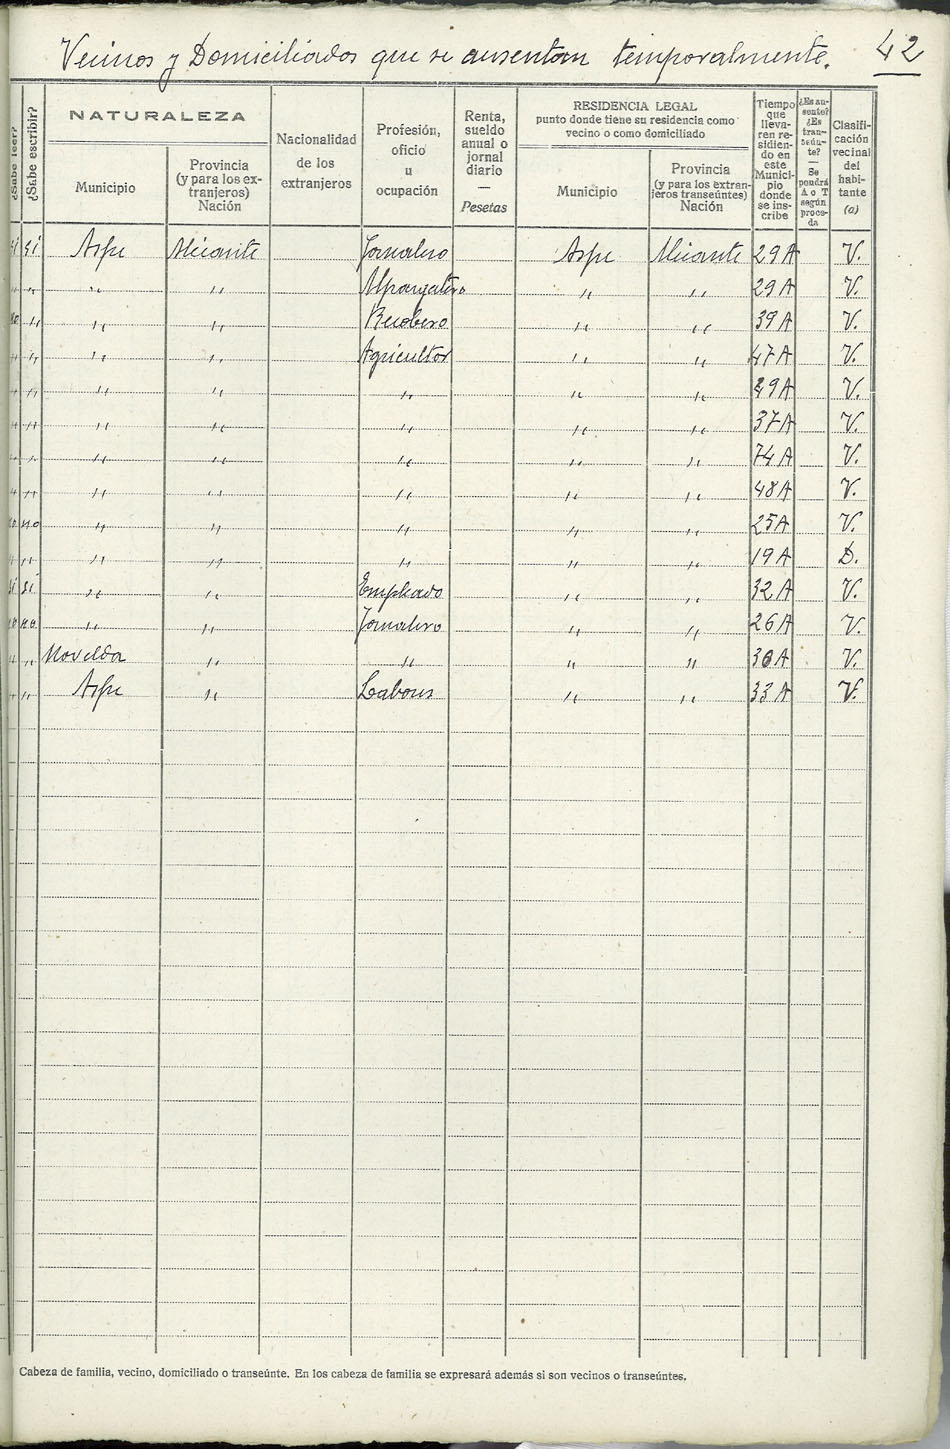 Vecinos y Domiciliados que se ausentan temporalmente. 42
¿Sabe leer?
¿Sabe escribir?
NATURALEZA
Municipio
Provincia
(y para los ex-
tranjeros)
Nación
Nacionalidad
de los
extranjeros
Profesión,
oficio
u
ocupación
Renta,
sueldo
anual o
jornal
diario
—
Pesetas
RESIDENCIA LEGAL
punto donde tiene su residencia como
vecino o como domiciliado
Municipio
Provincia
(y para los extran-
jeros transeúntes)
Nación
Tiempo
que
lleva-
ren re-
sidien-
do en
este
Munici-
pio
donde
se ins-
cribe
¿Es au-
sente?
¿Es
tran-
seún-
te?
—
Se
pondrá
A o T
según
proce-
da
Clasifi-
cación
vecinal
del
habi-
tante
(a)
sí sí Aspe Alicante Jornalero Aspe Alicante 29 A V.
" " " " Alpargatero " " 29 A V.
no " " " Recobero " " 39 A V.
" " " " Agricultor " " 47 A V.
" " " " " " " 49 A V.
" " " " " " " 37 A V.
" " " " " " " 74 A V.
" " " " " " " 48 A V.
no no " " " " " 25 A V.
" " " " " " " 19 A D.
sí sí " " Empleado " " 32 A V.
no no " " Jornalero " " 26 A V.
" " Novelda " " " " 36 A V.
" " Aspe " Labores " " 33 A V.
Cabeza de familia, vecino, domiciliado o transeúnte. En los cabeza de familia se expresará además si son vecinos o transeúntes.